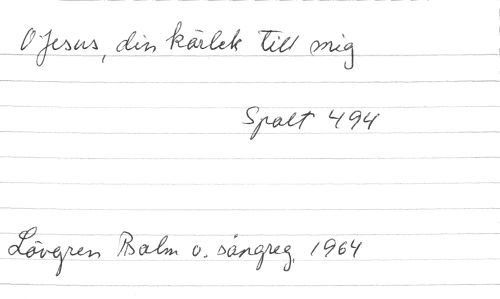 O Jesus, din kärlek till mig
Spalt 494
Lövgren Psalm o. sångreg. 1964